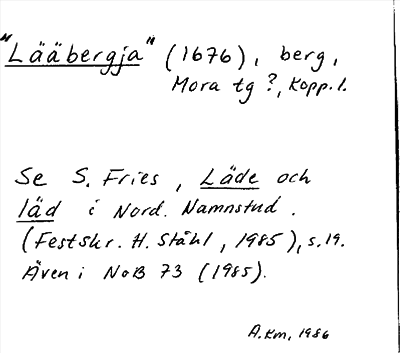 "Lääbergja" (1676), berg,
Mora tg ?, Kopp. l.
Se S. Fries, Läde och
läd i Nord. Namnstud.
(Festskr. H. Ståhl, 1985), s. 19.
Även i NoB 73 (1985).
A.Km, 1986